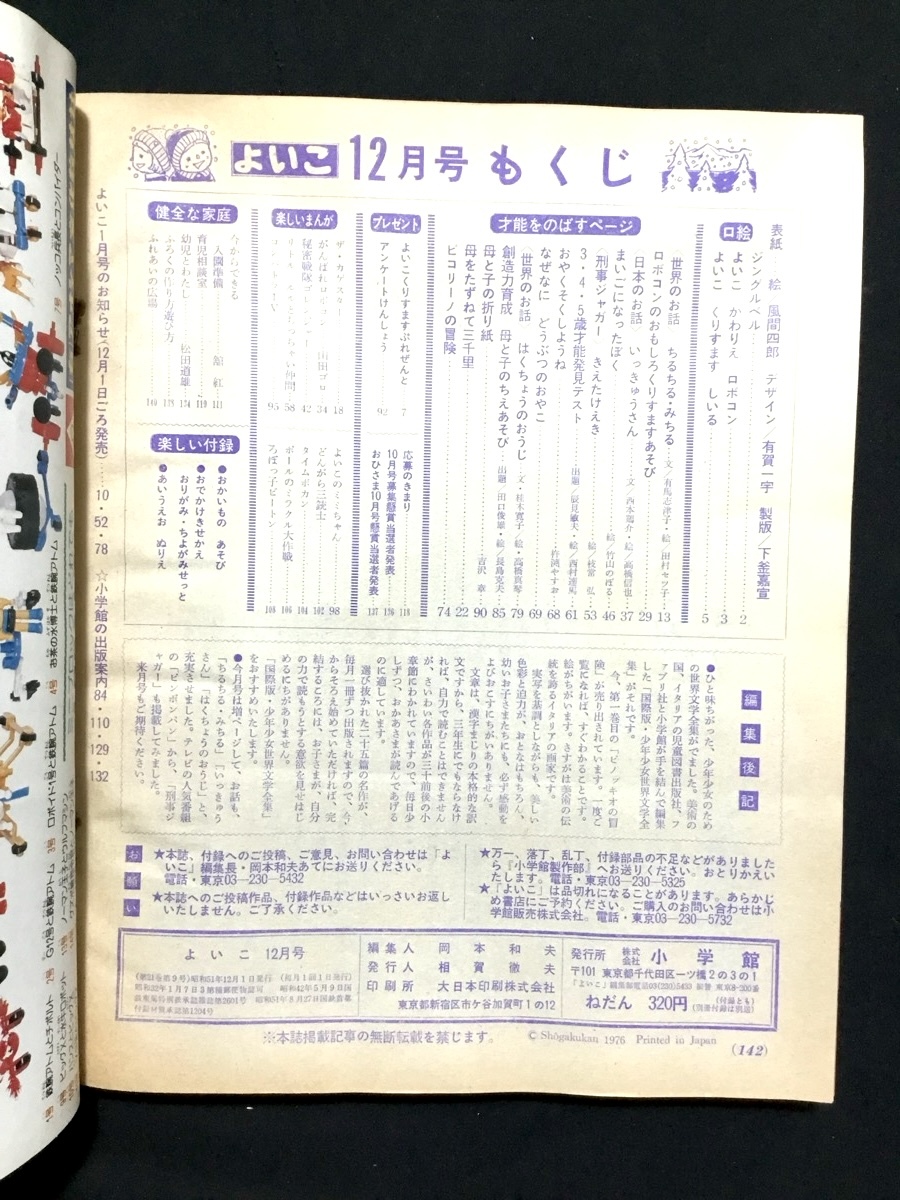 よいこ 12月号 もくじ
表紙 絵 風間四郎 デザイン 有賀一字 製版／下釜嘉宣
口絵
ジングルベル 2
よいこ かわりえ ロボコン 3
よいこ くりすます しいる 5
才能をのばすページ
世界のお話 ちるちる・みちる 文・有馬志津子・絵・田村セツ子 13
ロボコンのおもしろくりすますあそび 29
日本のお話 いっきゅうさん 37
まいごになったぼく 絵・竹山のぼる 46
刑事ジャガー きえたけえき 53
3・4・5歳才能発見テスト 61
おやくそくしようね 68
なぜなに どうぶつのおやこ 69
世界のお話 はくちょうのおうじ 79
創造力育成 母と子のちえあそび 85
母と子の折り紙 吉沢 章 90
母をたずねて三千里 22
ピコリーノの冒険 74
プレゼント
よいこくりすますぷれぜんと 7
アンケートけんしょう 92
応募のきまり 118
10月号募集懸賞当選者発表 136
おひさま10月号懸賞当選者発表 137
楽しいまんが
ザ・カゲスター 18
がんばれロボコン 34
42
58
95
よいこのミーちゃん 98
どんがら三銃士 102
タイムボカン 104
ポールのミラクル大作戦 106
ろぼっ子ビートン 108
健全な家庭
今からできる
入園準備 111
育児相談室 119
幼児とわたし 松田道雄 134
ふくろの作り方遊び方 138
ふれあいの広場 140
楽しい付録
●おかいもの あそび
●おでかけきせかえ
おりがみ・ちよがみせっと
●あいうえお ぬりえ
よいこ1月号のお知らせ（12月1日ごろ発売）……10・52・78 ☆小学館の出版案内84・110・129・132
編集後記
●ひと味ちがった、少年少女のため
の世界文学全集がでました。美術の
国、イタリアの児童図書出版社、フ
ァブリ社と小学館が手を結んで編集
した「国際版・少年少女世界文学全
集」がそれです。
今、第一巻目の「ピノッキオの冒
険」が売り出されています。一度ご
覧になれば、すぐわかることです。
絵がちがいます。さすがは美術の伝
統を誇るイタリアの画家です。
実写を基調としながらも、美しい
色彩と迫力が、おとなはもちろん、
幼いお子さまたちにも、必ず感動を
よびおこすにちがいありません。
文章は、漢字まじりの本格的な訳
文ですから、三年生にでもならなけ
れば、自力で読むことはできません
が、さいわい各作品が三十前後の小
章節にわかれていますので、毎日少
しずつ、おかあさまが読んであげる
のに適しています。
選び抜かれた二十五篇の名作が、
毎月一冊ずつ出版されますので、今
からそろえ始めていただければ、完
結するころには、お子さまが、自分
の力で読もうとする意欲を見せはじ
めるにちがありません。
「国際版・少年少女世界文学全集」
をおすすめいたします。
●今月号は増ページして、お話も
「ちるちる・みちる」「いっきゅう
さん」「はくちょうのおうじ」と、
充実させました。テレビの人気番組
の「ピンポンパン」から、「刑事ジ
ャガー」も掲載してみました。
来月号もご期待ください。
お願い
★本誌、付録へのご投稿、ご意見、お問い合わせは「よ
いこ」編集長・岡本和夫あてにお送りください。
電話・東京03—230—5432
★本誌へのご投稿作品、付録作品などはいっさいお返し
いたしません。ご了承ください。
★万一、落丁、乱丁、付録部品の不足などがありました
ら『小学館製作部』へお送りください。おとりかえい
たします。電話・東京03—230—5325
★「よいこ」は品切れになることがあります。あらかじ
め書店にご予約ください。ご購入のお問い合わせは小
学館販売株式会社。電話・東京03—230—5732
よいこ 12月号
（第21巻第9号）昭和51年12月1日発行 （毎月1回1日発行）
編集人 岡本和夫
発行人 相賀徹夫
印刷所 大日本印刷株式会社
東京都新宿区市ケ谷加賀町1の12
発行所 株式会社 小学館
〒101 東京都千代田区一ツ橋2の3の1
ねだん 320円（付録とも）
※本誌掲載記事の無断転載を禁じます。
© Shōgakukan 1976 Printed in Japan
(142)